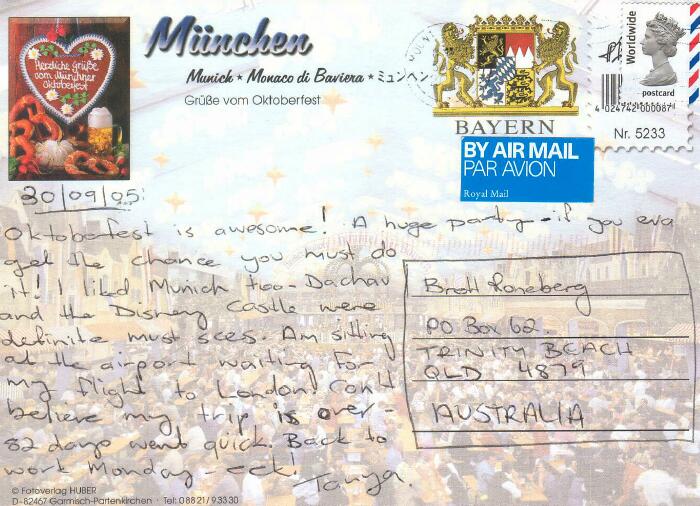 Herzliche Grüße
vom Münchner
Oktoberfest
München
Munich ★ Monaco di Baviera ★ ミュンヘン
Grüße vom Oktoberfest
BAYERN
BY AIR MAIL
PAR AVION
Royal Mail
Worldwide
postcard
4 024742 000087
Nr. 5233
30/09/05
Oktoberfest is awesome! A huge party - if you eva
get the chance you must do
it! I liked Munich too - Dachau
and the Disney Castle were
definite must sees. Am sitting
at the airport waiting for
my flight to London. Can't
believe my trip is over -
82 days went quick. Back to
work Monday - eek!
Tanya.
Brett
PO Box 62.
TRINITY BEACH
QLD 4879
AUSTRALIA
© Fotoverlag HUBER
D-82467 Garmisch-Partenkirchen · Tel: 0 88 21 / 9 33 30